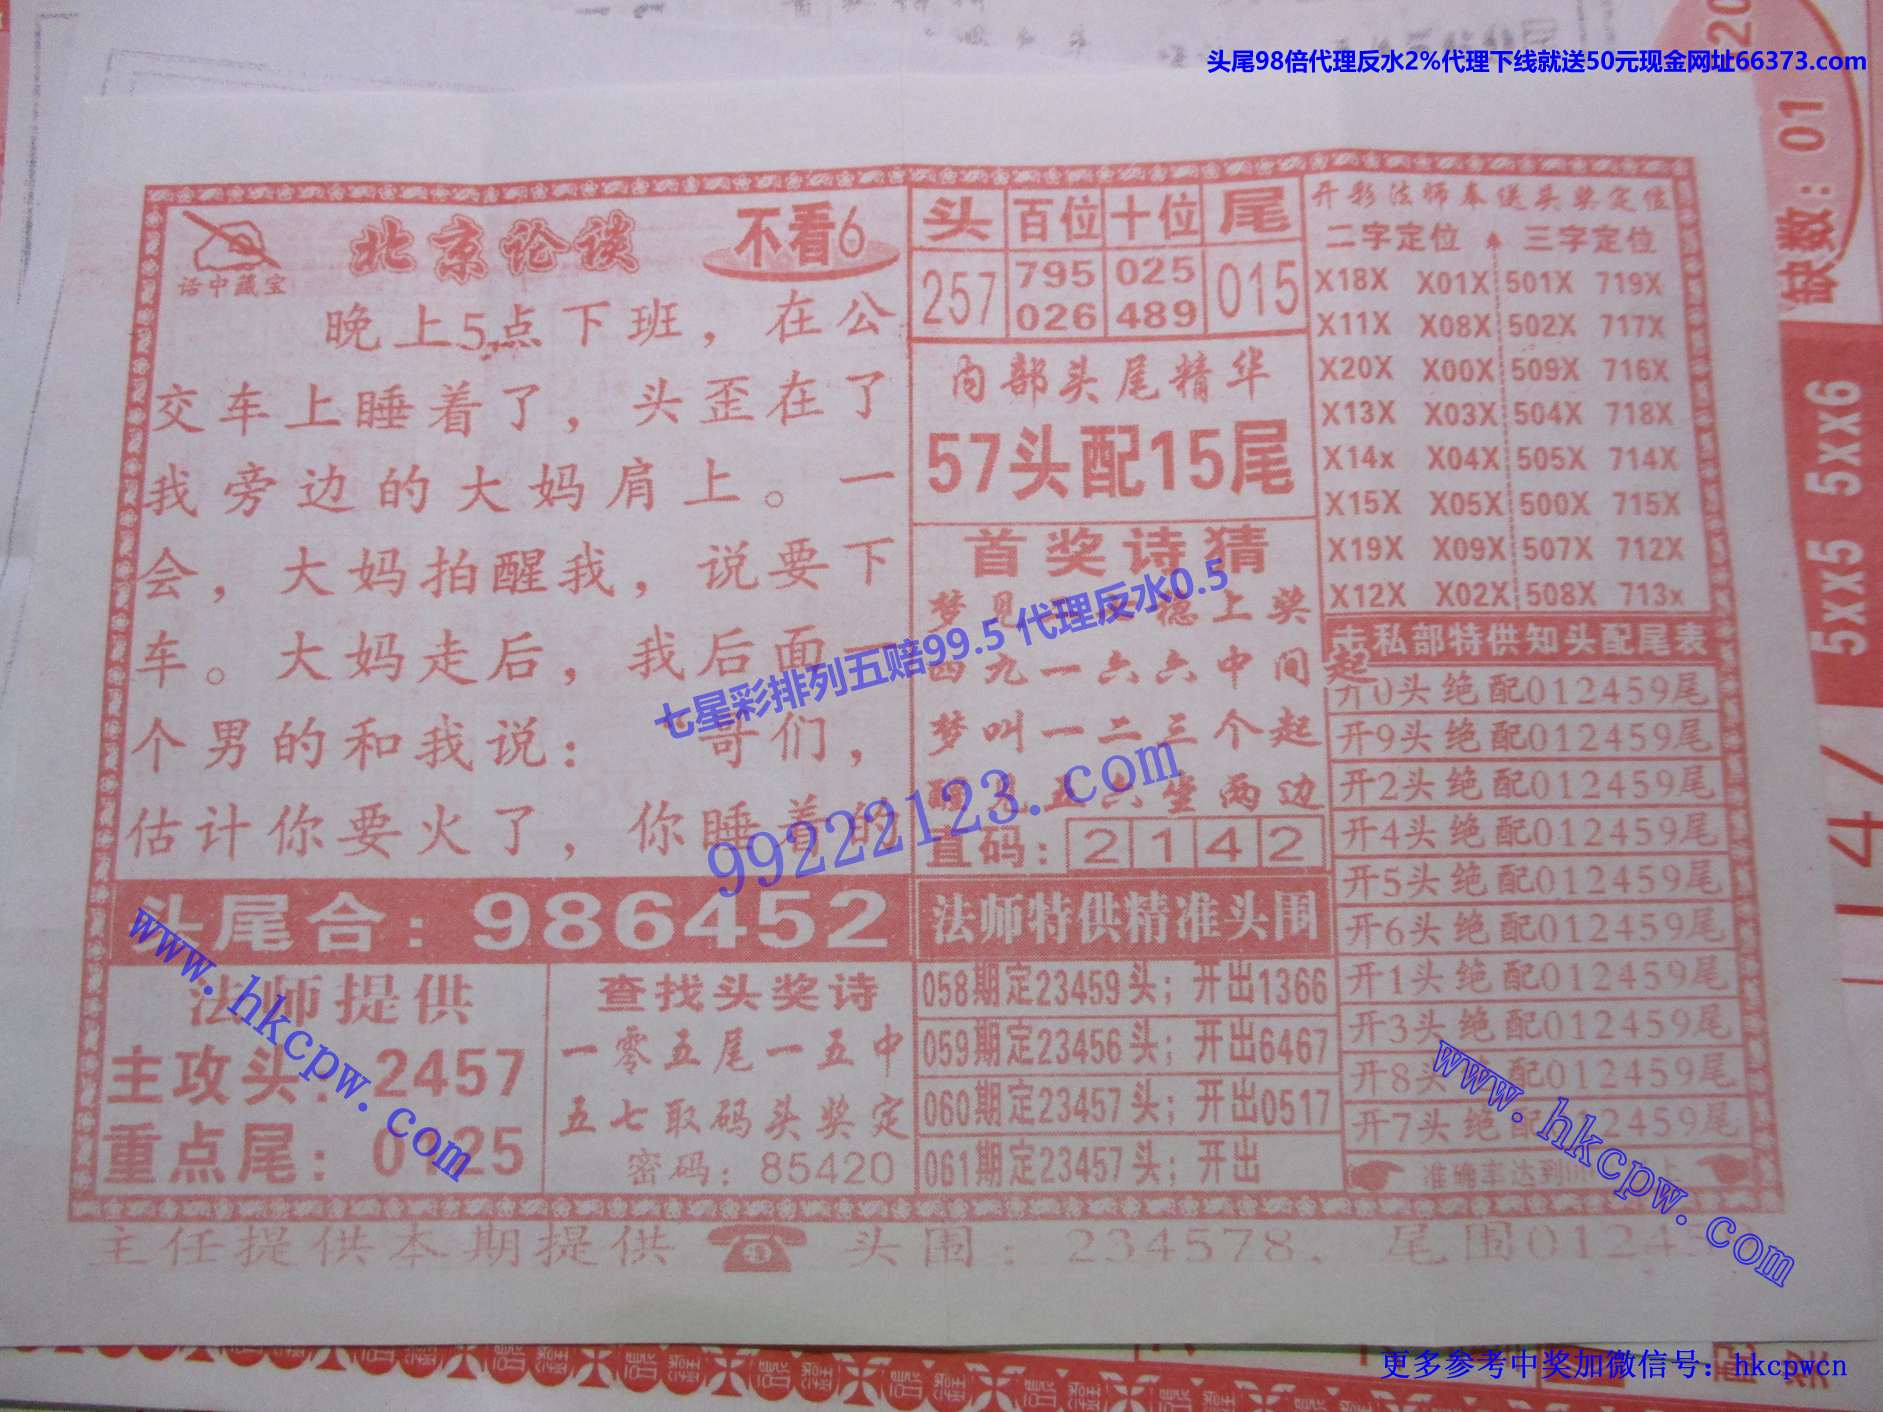 头尾98倍代理反水2%代理下线就送50元现金网址66373.com
话中藏宝
北京论谈
不看6
晚上5点下班，在公
交车上睡着了，头歪在了
我旁边的大妈肩上。一
会，大妈拍醒我，说要下
车。大妈走后，我后面一
个男的和我说：哥们，
估计你要火了，你睡着的
头尾合：986452
法师提供
主攻头：2457
重点尾：0125
查找头奖诗
一零五尾一五中
五七取码头奖定
密码：85420
头 百位 十位 尾
257 795 025 015
026 489
内部头尾精华
57头配15尾
首奖诗猜
梦见 德上奖
四九一六六中间起
梦叫一二三个起
醒见五六坐两边
直码：2 1 4 2
法师特供精准头围
058期定23459头；开出1366
059期定23456头；开出6467
060期定23457头；开出0517
061期定23457头；开出
开彩法师奉送头奖定位
二字定位 三字定位
X18X X01X 501X 719X
X11X X08X 502X 717X
X20X X00X 509X 716X
X13X X03X 504X 718X
X14x X04X 505X 714X
X15X X05X 500X 715X
X19X X09X 507X 712X
X12X X02X 508X 713x
私部特供知头配尾表
开0头绝配012459尾
开9头绝配012459尾
开2头绝配012459尾
开4头绝配012459尾
开5头绝配012459尾
开6头绝配012459尾
开1头绝配012459尾
开3头绝配012459尾
开8头 配012459尾
开7头绝配 2459尾
准确率达到
主任提供本期提供 头围：234578. 尾围01245
七星彩排列五赔99.5 代理反水0.5
99222123.com
www.hkcpw.com
www.hkcpw.com
缺数：01
5xx5 5xx6
47
更多参考中奖加微信号：hkcpwcn